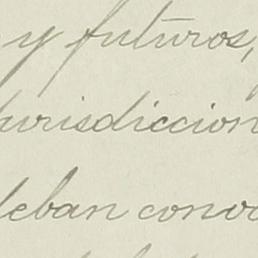 y futuros,
jurisdiccion
deban convo